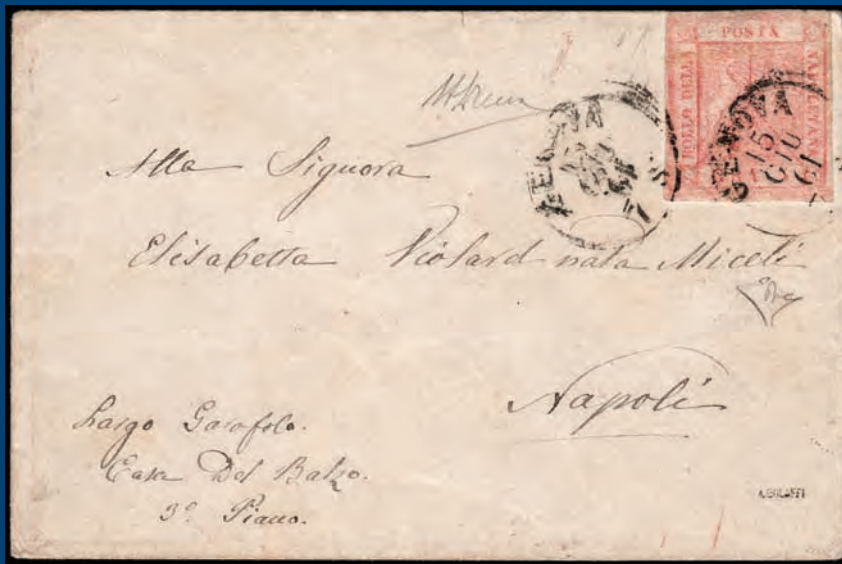 POSTA
BOLLO DELLA
NAPOLETANA
GENOVA
15
GIU
61
Alla Signora
Elisabetta Violard nata Miceli
Napoli
Largo Garofolo.
Casa Del Balzo.
3º Piano.
A.BOLAFFI